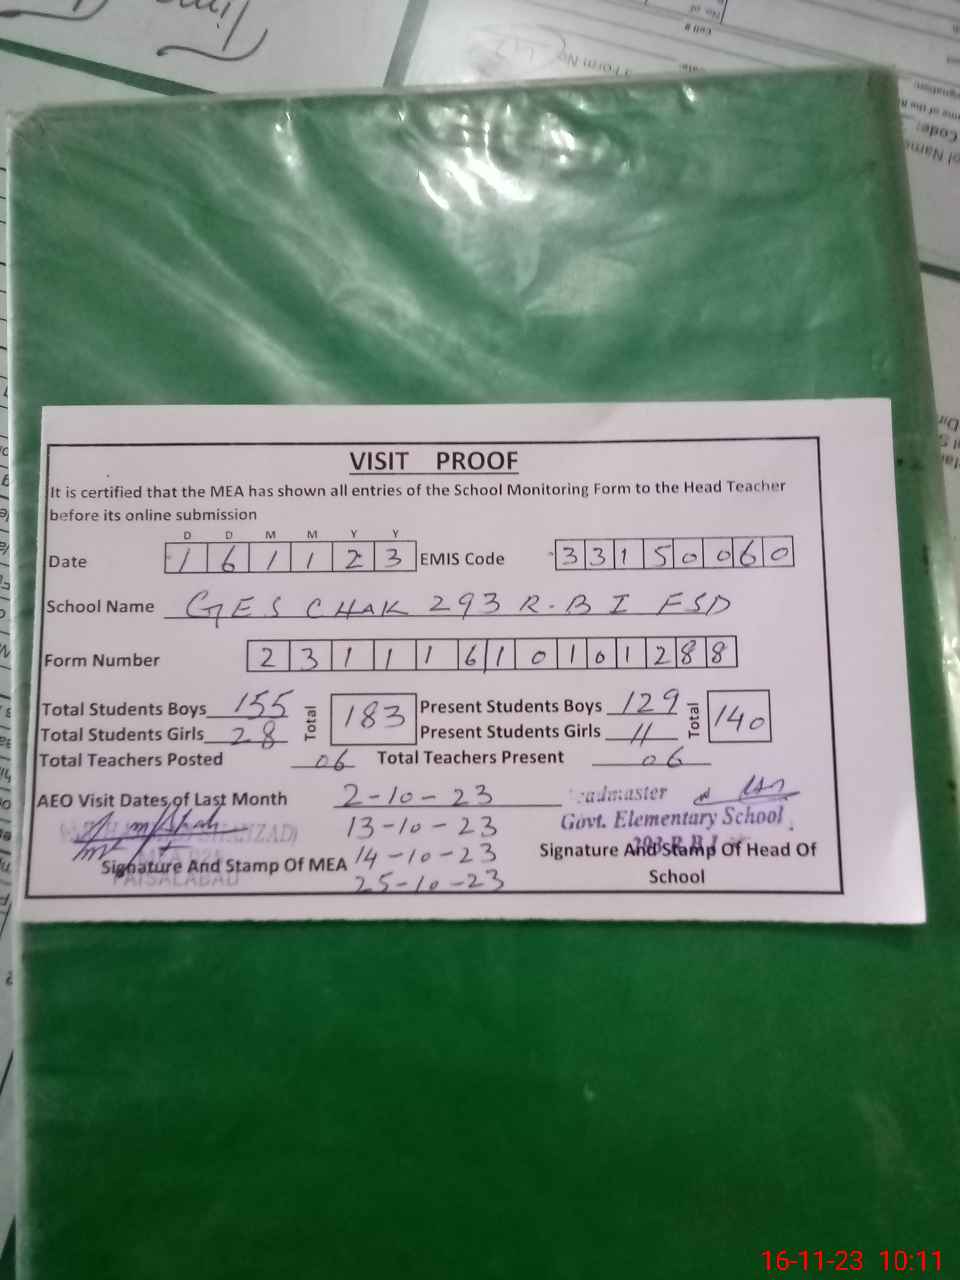 VISIT PROOF
It is certified that the MEA has shown all entries of the School Monitoring Form to the Head Teacher
before its online submission
D D M M Y Y
Date 1 6 1 1 2 3 EMIS Code 3 3 1 5 0 0 6 0
School Name GES CHAK 293 R-B I FSD
Form Number 2 3 1 1 1 6 1 0 1 0 1 2 8 8
Total Students Boys 155 Total 183 Present Students Boys 129 Total 140
Total Students Girls 28 Present Students Girls 11
Total Teachers Posted 06 Total Teachers Present 06
AEO Visit Dates of Last Month 2-10-23
13-10-23
14-10-23
25-10-23
Signature And Stamp Of MEA
FAISALABAD
Govt. Elementary School
Signature And Stamp Of Head Of
School
Form No
Cell #
No. of
Code:
16-11-23 10:11